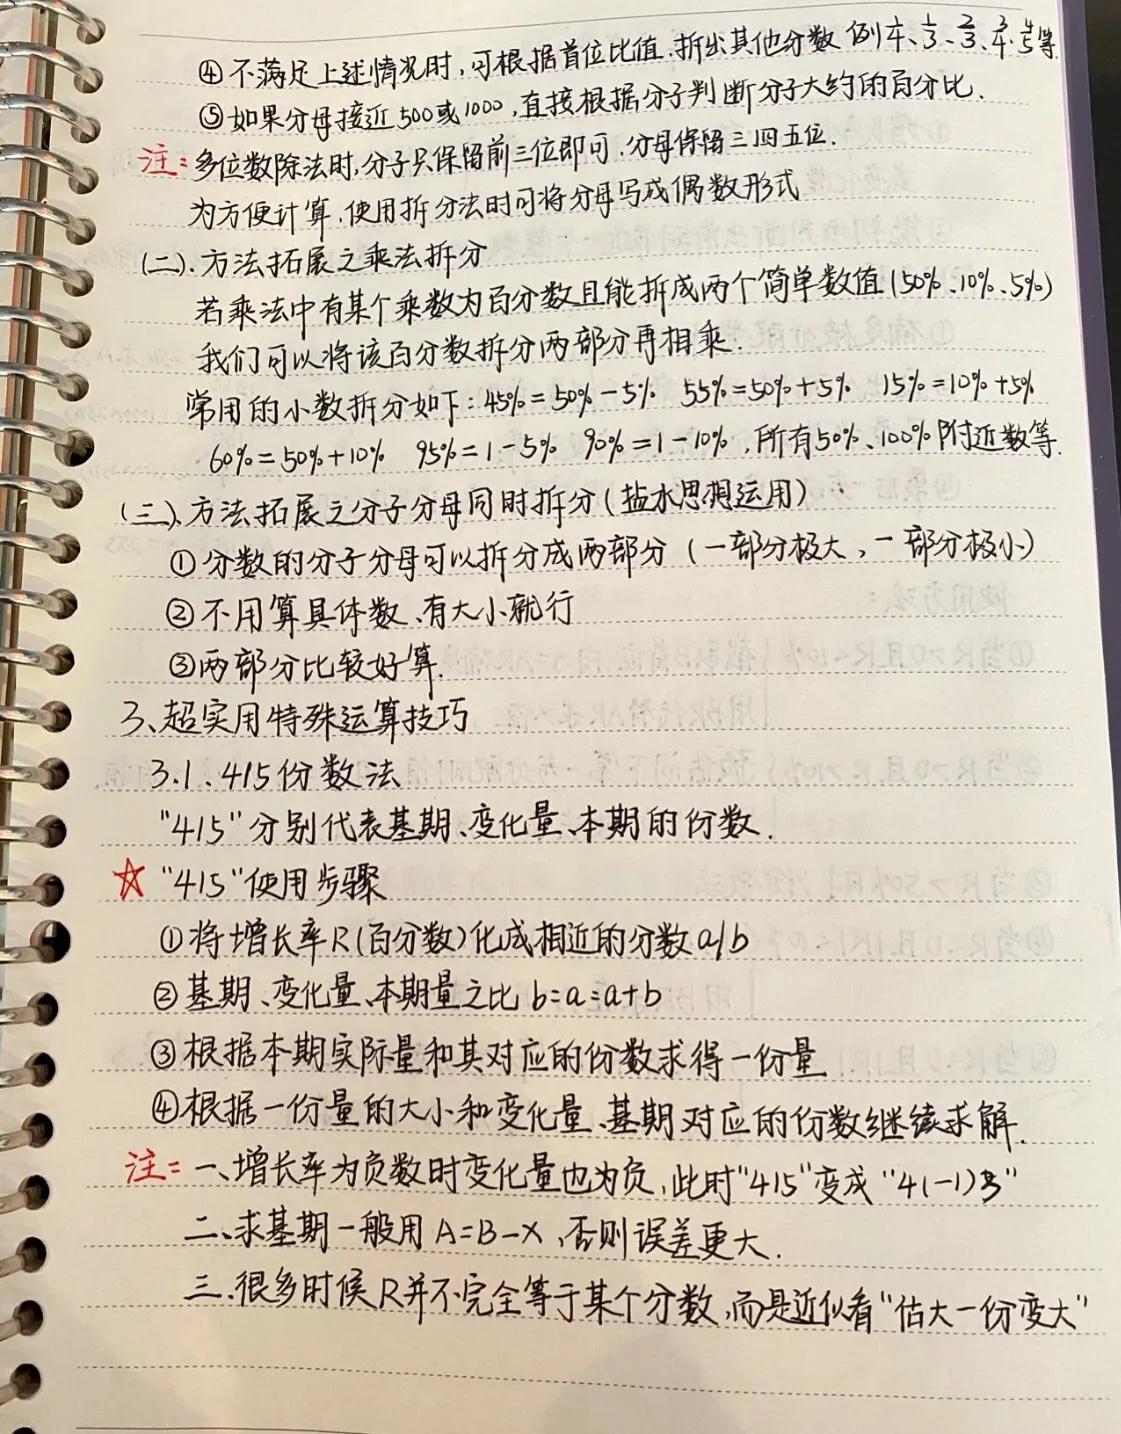 ④不满足上述情况时,可根据首位比值.拆出其他分数 例1/4、1/3、2/3、3/4.4/5等
⑤如果分母接近500或1000,直接根据分子判断分子大约的百分比.
注:多位数除法时,分子只保留前三位即可.分母保留三四五位.
为方便计算.使用拆分法时可将分母写成偶数形式
(二).方法拓展之乘法拆分
若乘法中有某个乘数为百分数且能拆成两个简单数值(50%、10%、5%)
我们可以将该百分数拆分两部分再相乘.
常用的小数拆分如下:45%=50%-5% 55%=50%+5% 15%=10%+5%
60%=50%+10% 95%=1-5% 90%=1-10%,所有50%、100%附近数等.
(三).方法拓展之分子分母同时拆分(盐水思想运用)
①分数的分子分母可以拆分成两部分(一部分极大,一部分极小)
②不用算具体数、有大小就行
③两部分比较好算.
3、超实用特殊运算技巧
3.1.415份数法
"415"分别代表基期、变化量、本期的份数.
☆"415"使用步骤
①将增长率R(百分数)化成相近的分数a/b
②基期、变化量、本期量之比b:a:a+b
③根据本期实际量和其对应的份数求得一份量
④根据一份量的大小和变化量、基期对应的份数继续求解.
注:一、增长率为负数时变化量也为负,此时"415"变成"4(-1)3"
二、求基期一般用A=B-X,否则误差更大.
三.很多时候R并不完全等于某个分数,而是近似看"估大一份变大"